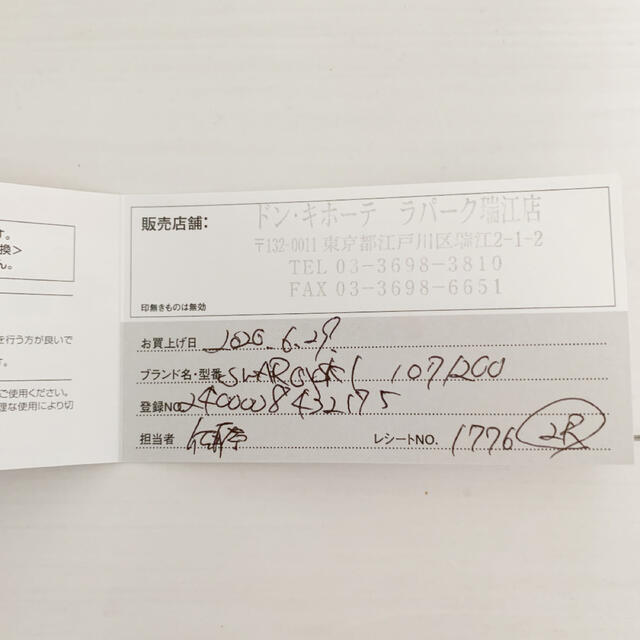 す。
換＞
ん。
を行う方が良いで
す。
ご使用ください。
理な使用により切
販売店舗:
ドン・キホーテ ラパーク瑞江店
〒132-0011 東京都江戸川区瑞江2-1-2
TEL 03-3698-3810
FAX 03-3698-6651
印無きものは無効
お買上げ日 2020.6.29.
ブランド名・型番 SWAROVSKI 1071200
登録NO. 2400028432175
担当者
レシートNO. 1776 2R